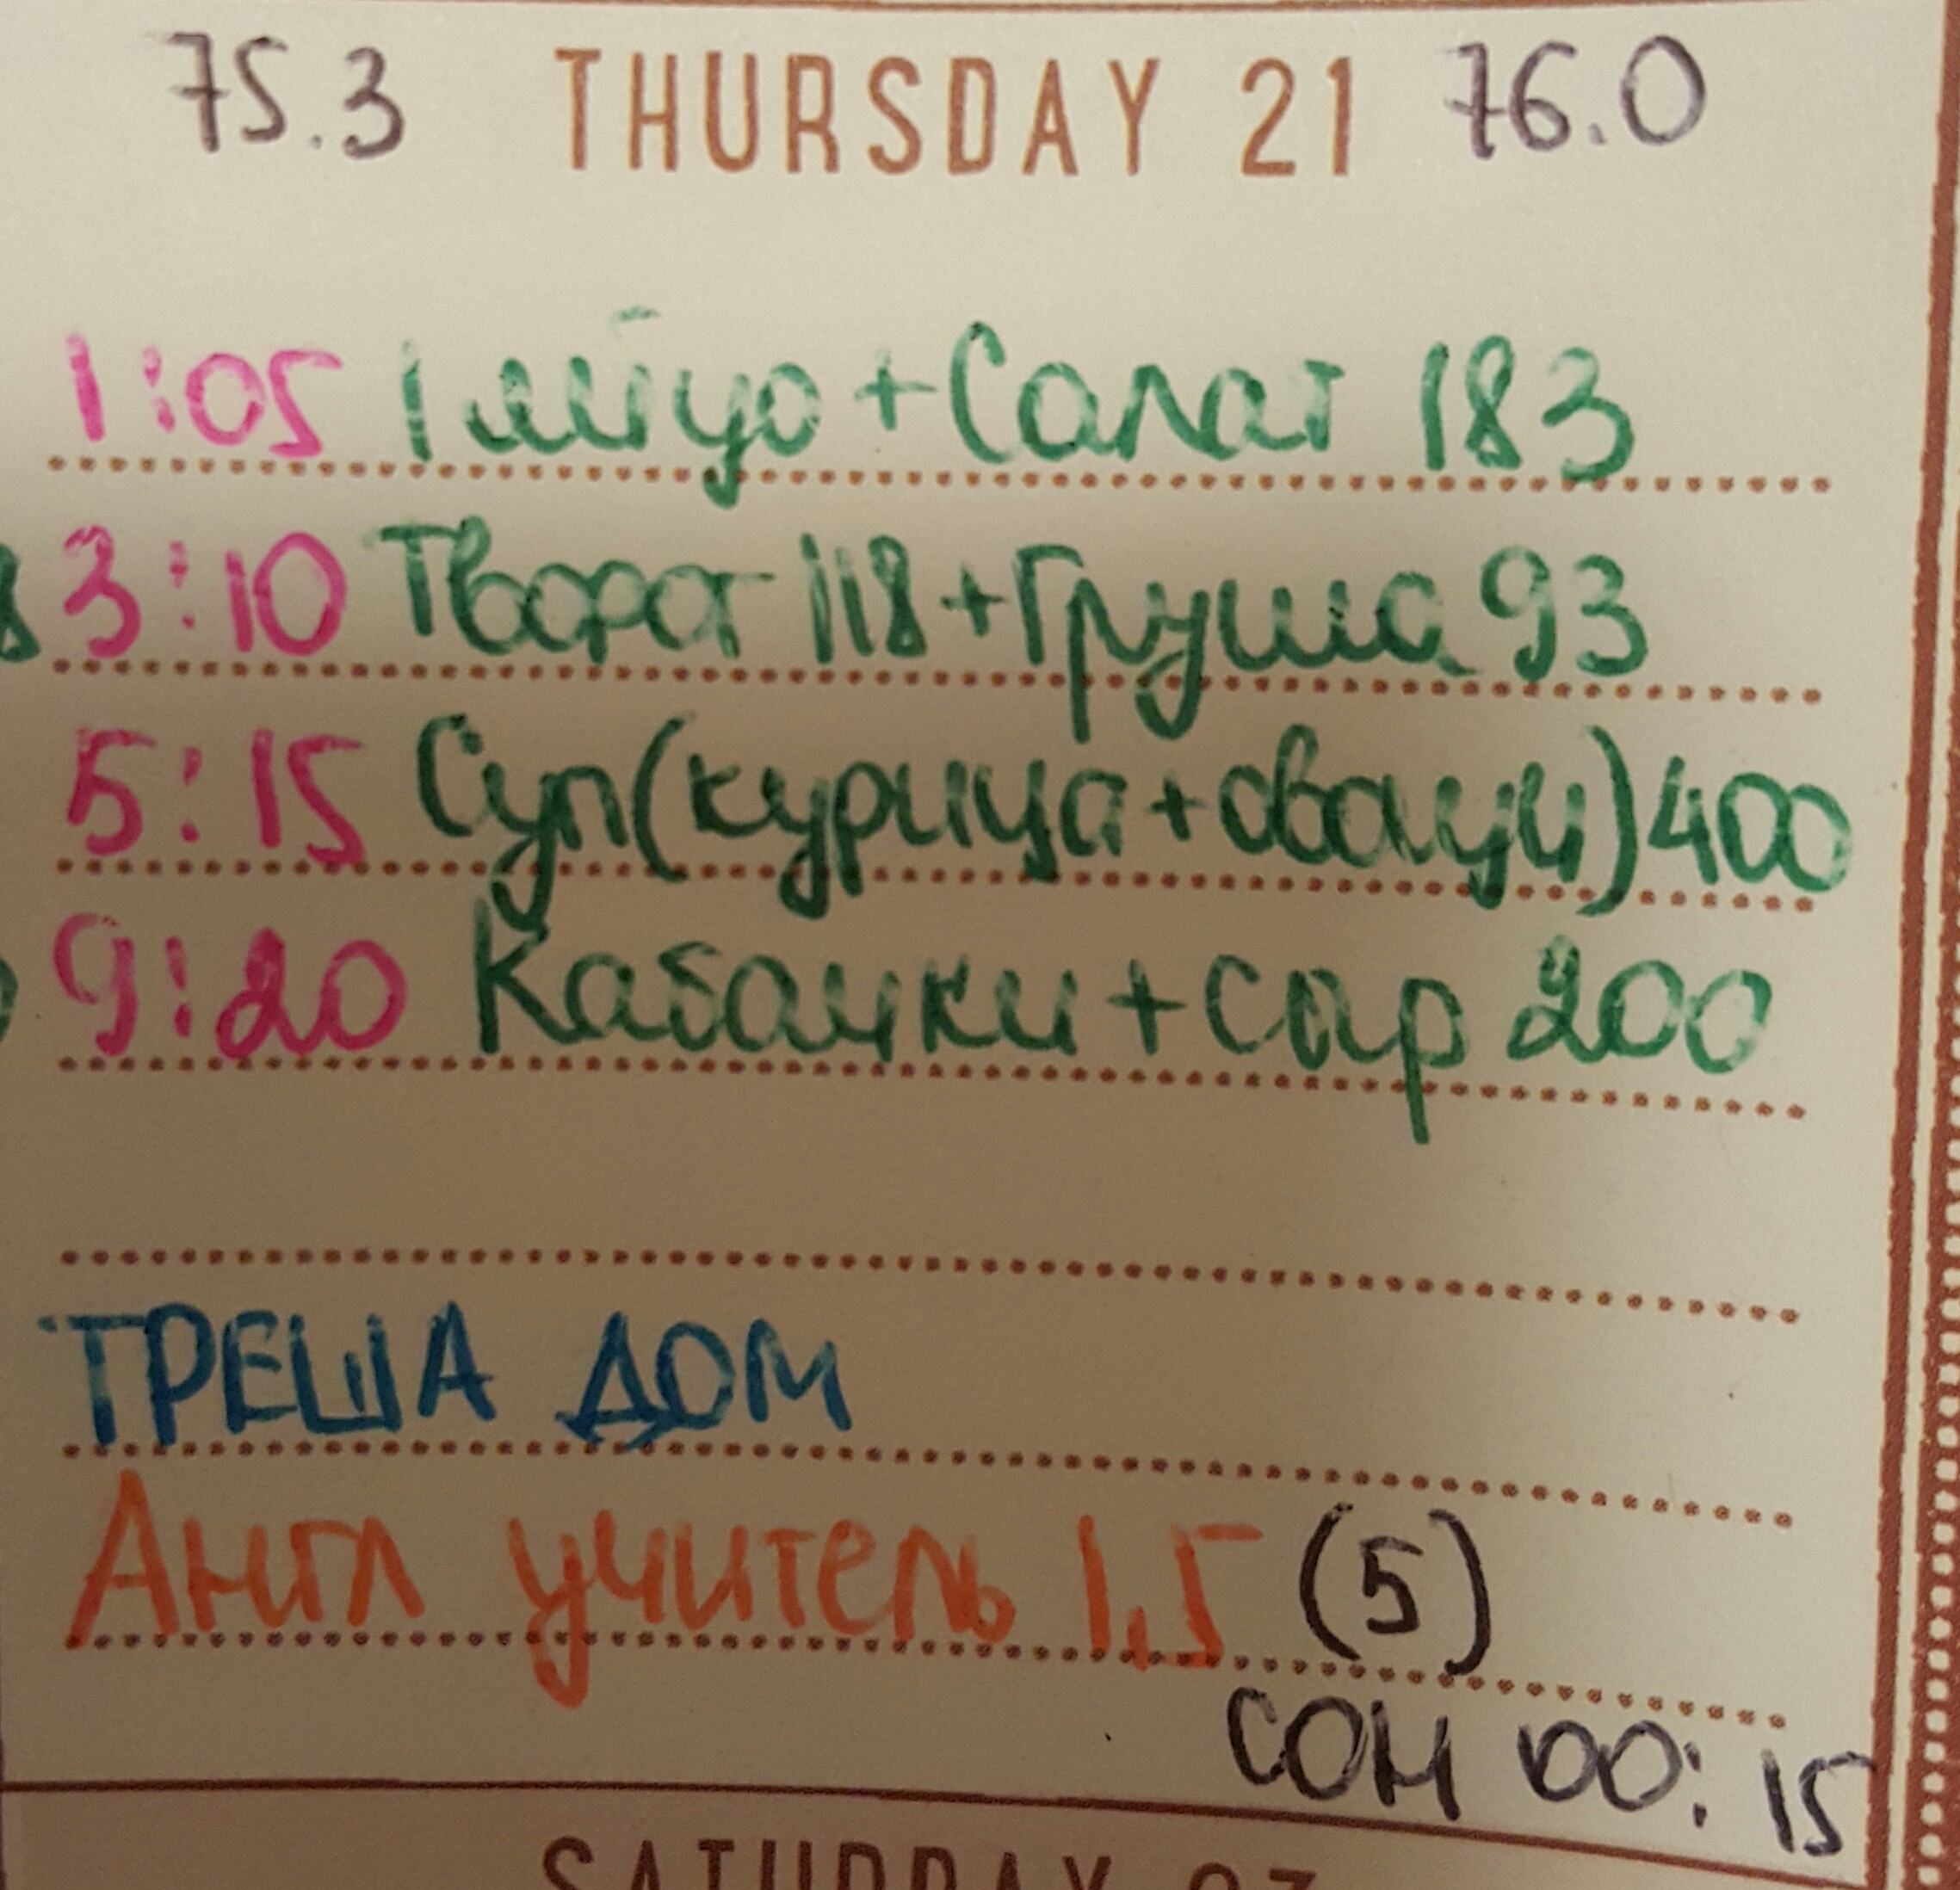 75.3 THURSDAY 21 76.0
1:05 1 яйцо + Салат 183
3:10 Творог 118 + Груша 93
5:15 Суп (курица + овощи) 400
9:20 Кабачки + сыр 200
ТРЕША ДОМ
Англ учитель 1,5 (5)
СОН 00:15
SATURDAY 23